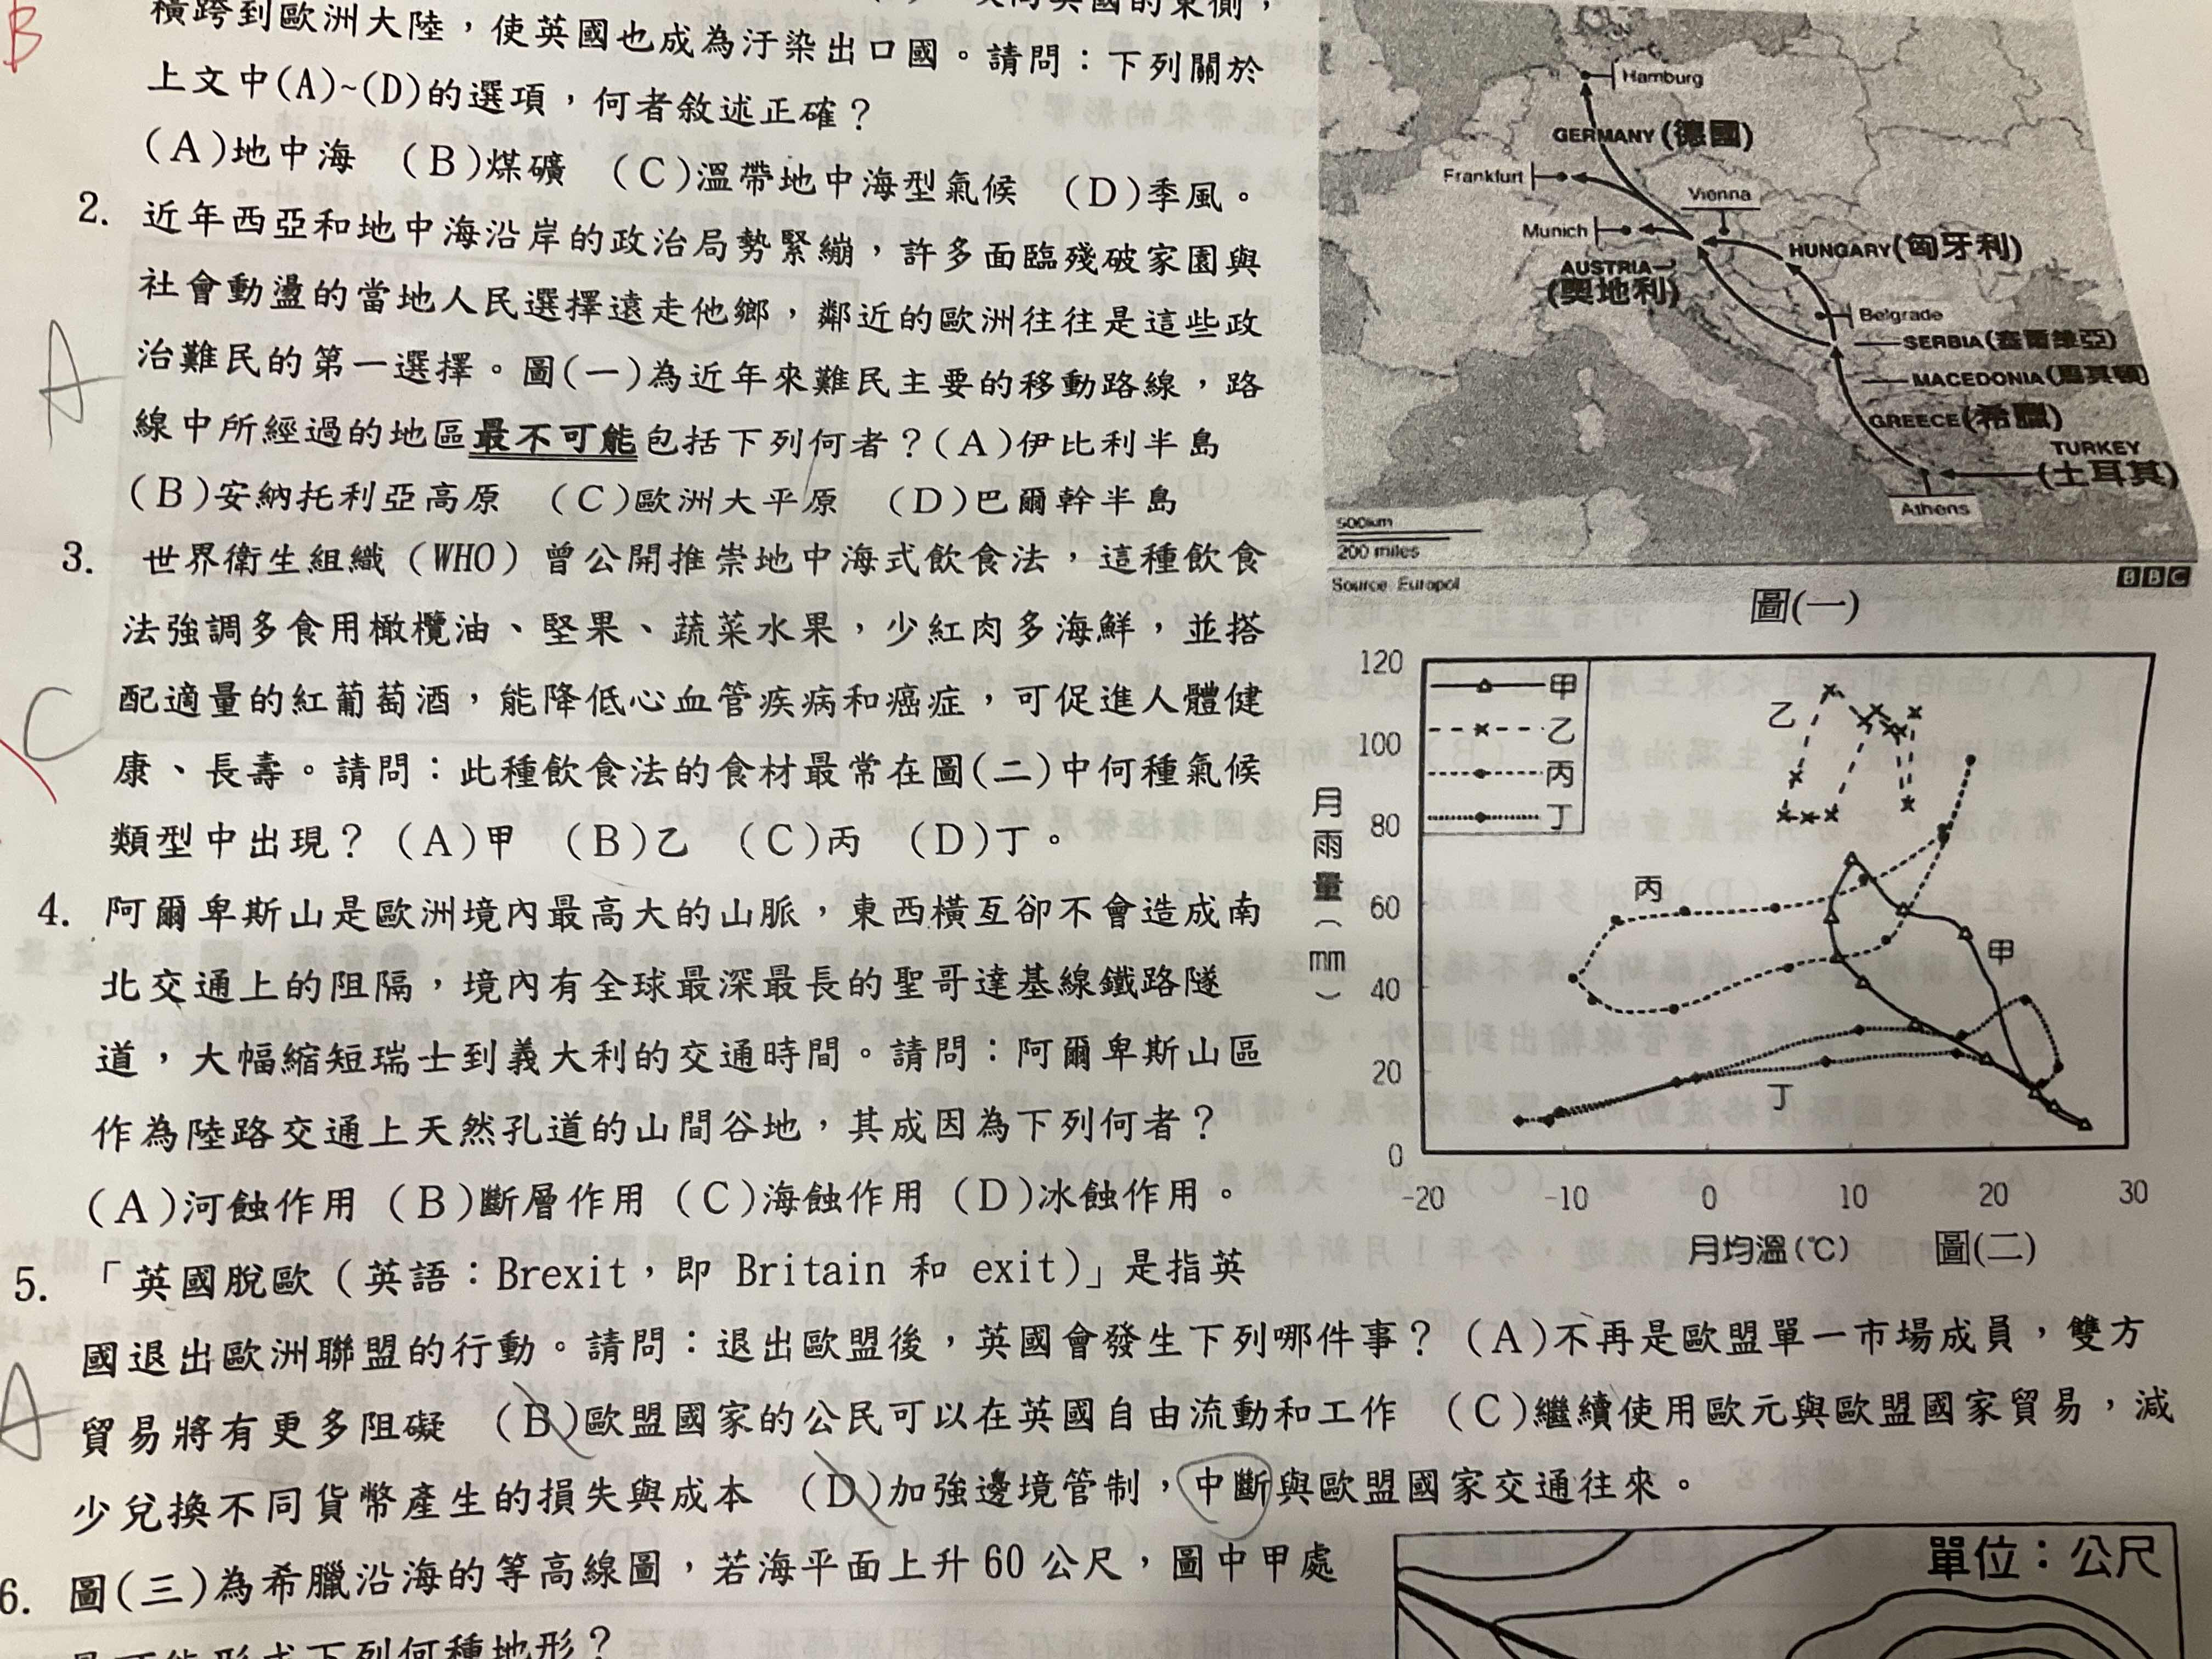 B
橫跨到歐洲大陸，使英國也成為汙染出口國。請問：下列關於
上文中(A)~(D)的選項，何者敘述正確？
(A)地中海 (B)煤礦 (C)溫帶地中海型氣候 (D)季風。
A
2. 近年西亞和地中海沿岸的政治局勢緊繃，許多面臨殘破家園與
社會動盪的當地人民選擇遠走他鄉，鄰近的歐洲往往是這些政
治難民的第一選擇。圖(一)為近年來難民主要的移動路線，路
線中所經過的地區最不可能包括下列何者？(A)伊比利半島
(B)安納托利亞高原 (C)歐洲大平原 (D)巴爾幹半島
C
3. 世界衛生組織（WHO）曾公開推崇地中海式飲食法，這種飲食
法強調多食用橄欖油、堅果、蔬菜水果，少紅肉多海鮮，並搭
配適量的紅葡萄酒，能降低心血管疾病和癌症，可促進人體健
康、長壽。請問：此種飲食法的食材最常在圖(二)中何種氣候
類型中出現？ (A)甲 (B)乙 (C)丙 (D)丁。
4. 阿爾卑斯山是歐洲境內最高大的山脈，東西橫亙卻不會造成南
北交通上的阻隔，境內有全球最深最長的聖哥達基線鐵路隧
道，大幅縮短瑞士到義大利的交通時間。請問：阿爾卑斯山區
作為陸路交通上天然孔道的山間谷地，其成因為下列何者？
(A)河蝕作用 (B)斷層作用 (C)海蝕作用 (D)冰蝕作用。
A
5. 「英國脫歐（英語：Brexit，即 Britain 和 exit)」是指英
國退出歐洲聯盟的行動。請問：退出歐盟後，英國會發生下列哪件事？ (A)不再是歐盟單一市場成員，雙方
貿易將有更多阻礙 (B)歐盟國家的公民可以在英國自由流動和工作 (C)繼續使用歐元與歐盟國家貿易，減
少兌換不同貨幣產生的損失與成本 (D)加強邊境管制，中斷與歐盟國家交通往來。
6. 圖(三)為希臘沿海的等高線圖，若海平面上升60公尺，圖中甲處
最可能形成下列何種地形？
Hamburg
GERMANY(德國)
Frankfurt
Vienna
Munich
HUNGARY(匈牙利)
AUSTRIA
(奧地利)
Belgrade
SERBIA(塞爾維亞)
MACEDONIA(馬其頓)
GREECE(希臘)
TURKEY
(土耳其)
Athens
500km
200 miles
Source: Europol
BBC
圖(一)
120
100
80
60
40
20
0
月雨量（mm）
甲
乙
丙
丁
乙
丙
甲
丁
-20 -10 0 10 20 30
月均溫(℃)
圖(二)
單位：公尺